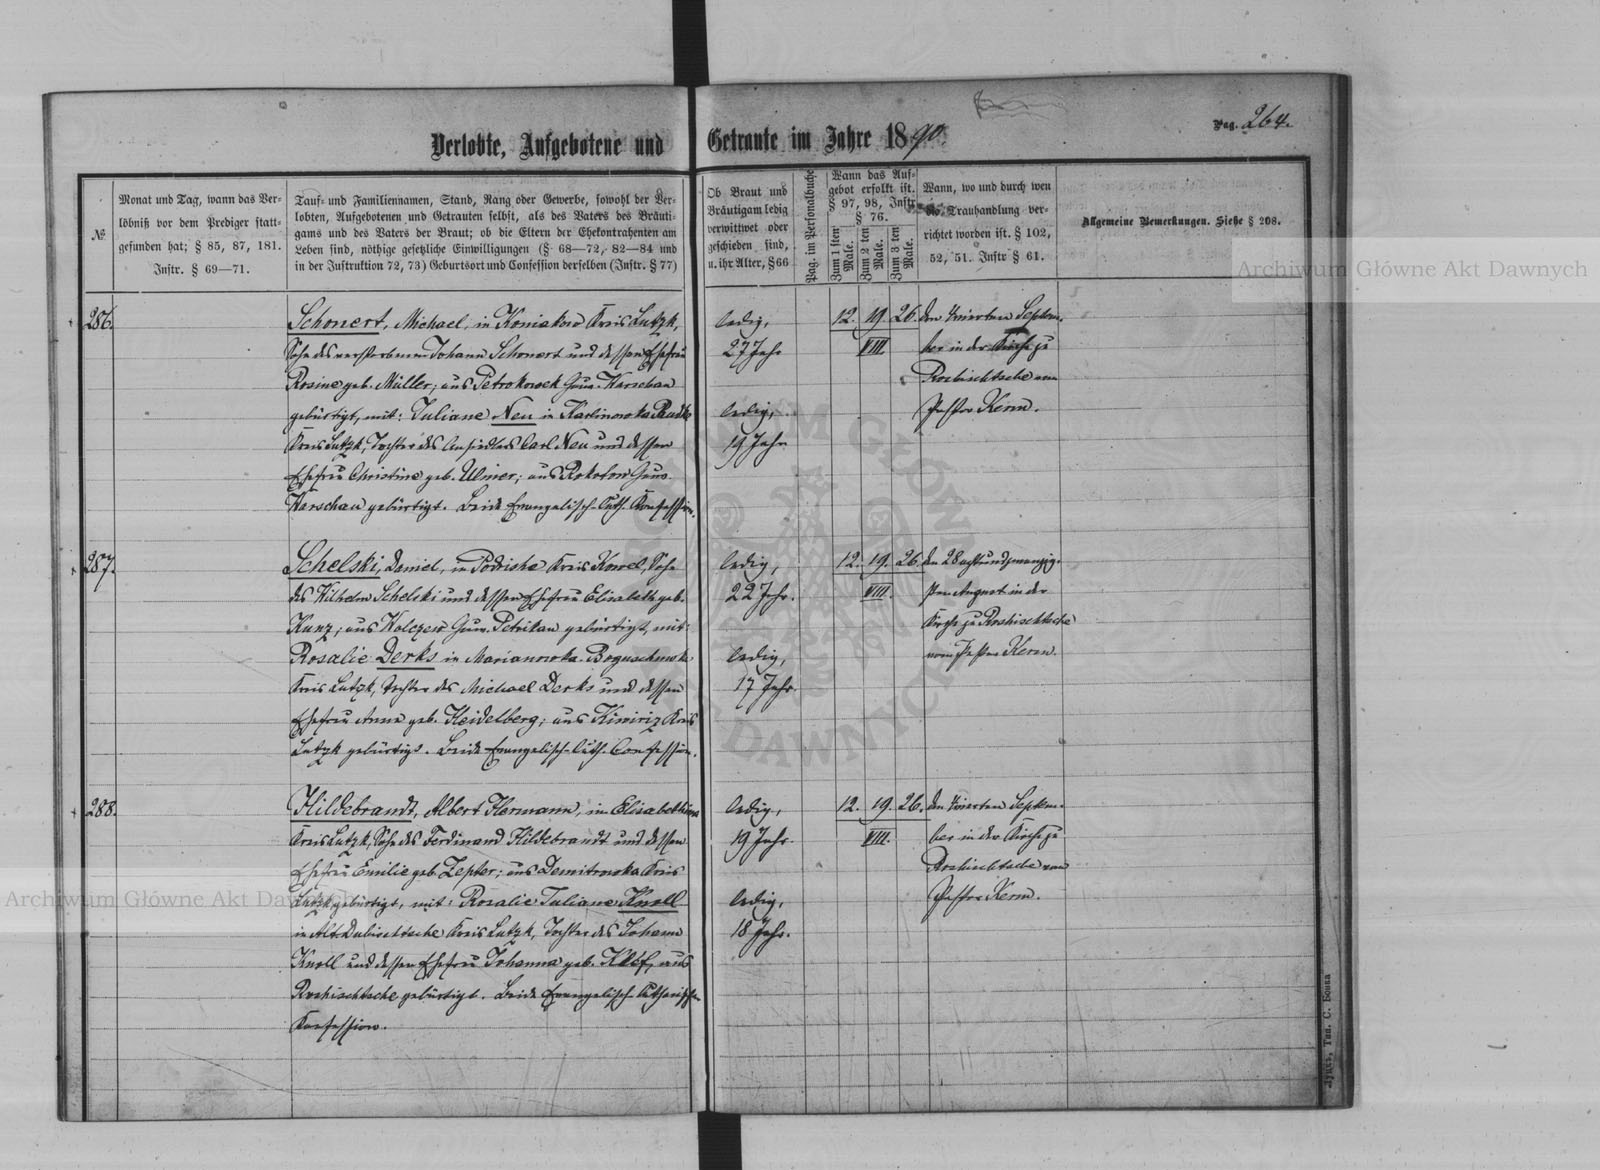 Pag. 264.
Verlobte, Aufgebotene und Getraute im Jahre 1890.
№.
Monat und Tag, wann das Ver-
löbniß vor dem Prediger statt-
gefunden hat; § 85, 87, 181.
Instr. § 69—71.
Tauf- und Familiennamen, Stand, Rang oder Gewerbe, sowohl der Ver-
lobten, Aufgebotenen und Getrauten selbst, als des Vaters des Bräuti-
gams und des Vaters der Braut; ob die Eltern der Ehekontrahenten am
Leben sind, nöthige gesetzliche Einwilligungen (§ 68—72, 82—84 und
in der Instruktion 72, 73) Geburtsort und Confession derselben (Instr. § 77)
Ob Braut und
Bräutigam ledig
verwittwet oder
geschieden sind,
u. ihr Alter, § 66
Pag. im Personalbuche
Wann das Auf-
gebot erfolkt ist.
§ 97, 98, Instr.
§ 76.
Zum 1 sten Male.
Zum 2 ten Male.
Zum 3 ten Male.
Wann, wo und durch wen
Trauhandlung ver-
richtet worden ist. § 102,
52, 51. Instr § 61.
Allgemeine Bemerkungen. Siehe § 208.
286.
Schonert, Michael, in Koniakow Kreis Lutzk,
Sohn des verstorbenen Johann Schonert und dessen Ehefrau
Rosine geb. Müller; aus Petrokowek Gouv. Warschau
gebürtigt, mit: Juliane Neu in Karlinowka Rudke
Kreis Lutzk, Tochter des Ansiedlers Carl Neu und dessen
Ehefrau Christine geb. Ulmer; aus Rokoton Gouv.
Warschau gebürtigt. Beide Evangelisch-Luth. Konfession.
ledig,
27 Jahr
ledig,
19 Jahr
12. 19. 26.
VIII
den Vierten Septem-
ber in der Kirche zu
Roshischtsche vom
Pastor Kerm.
287.
Schelski, Daniel, in Podrishe Kreis Kowel, Sohn
des Wilhelm Schelski und dessen Ehefrau Elisabeth geb.
Kunz; aus Wolczew Gouv. Petrikau gebürtigt, mit:
Rosalie Derks in Marianowka-Boguschewk.
Kreis Lutzk, Tochter des Michael Derks und dessen
Ehefrau Anna geb. Heidelberg; aus Kiwiriz Kreis
Lutzk gebürtigt. Beide Evangelisch-Luth. Confession.
ledig,
22 Jahr.
ledig,
17 Jahr.
12. 19. 26.
VIII.
den 28 achtundzwanzig-
sten August in der
Kirche zu Roshischtsche
vom Pastor Kerm.
288.
Hildebrandt, Albert Hermann, in
Kreis Lutzk, Sohn des Ferdinand Hildebrandt und dessen
Ehefrau Emilie geb. Zepter; aus Demitrowka Kreis
Lutzk gebürtigt, mit: Rosalie Juliane Knoll
in Alt Dubischtsche Kreis Lutzk, Tochter des Johann
Knoll und dessen Ehefrau Johanna geb. aus
Roshischtsche gebürtigt. Beide Evangelisch-Lutherischer
Konfession.
ledig,
19 Jahr.
ledig,
18 Jahr.
12. 19. 26.
VIII.
den Vierten Septem-
ber in der Kirche zu
Roshischtsche vom
Pastor Kerm.
Луцкъ, Тип. С. Бонка
Archiwum Główne Akt Dawnych
Archiwum Główne Akt Dawnych